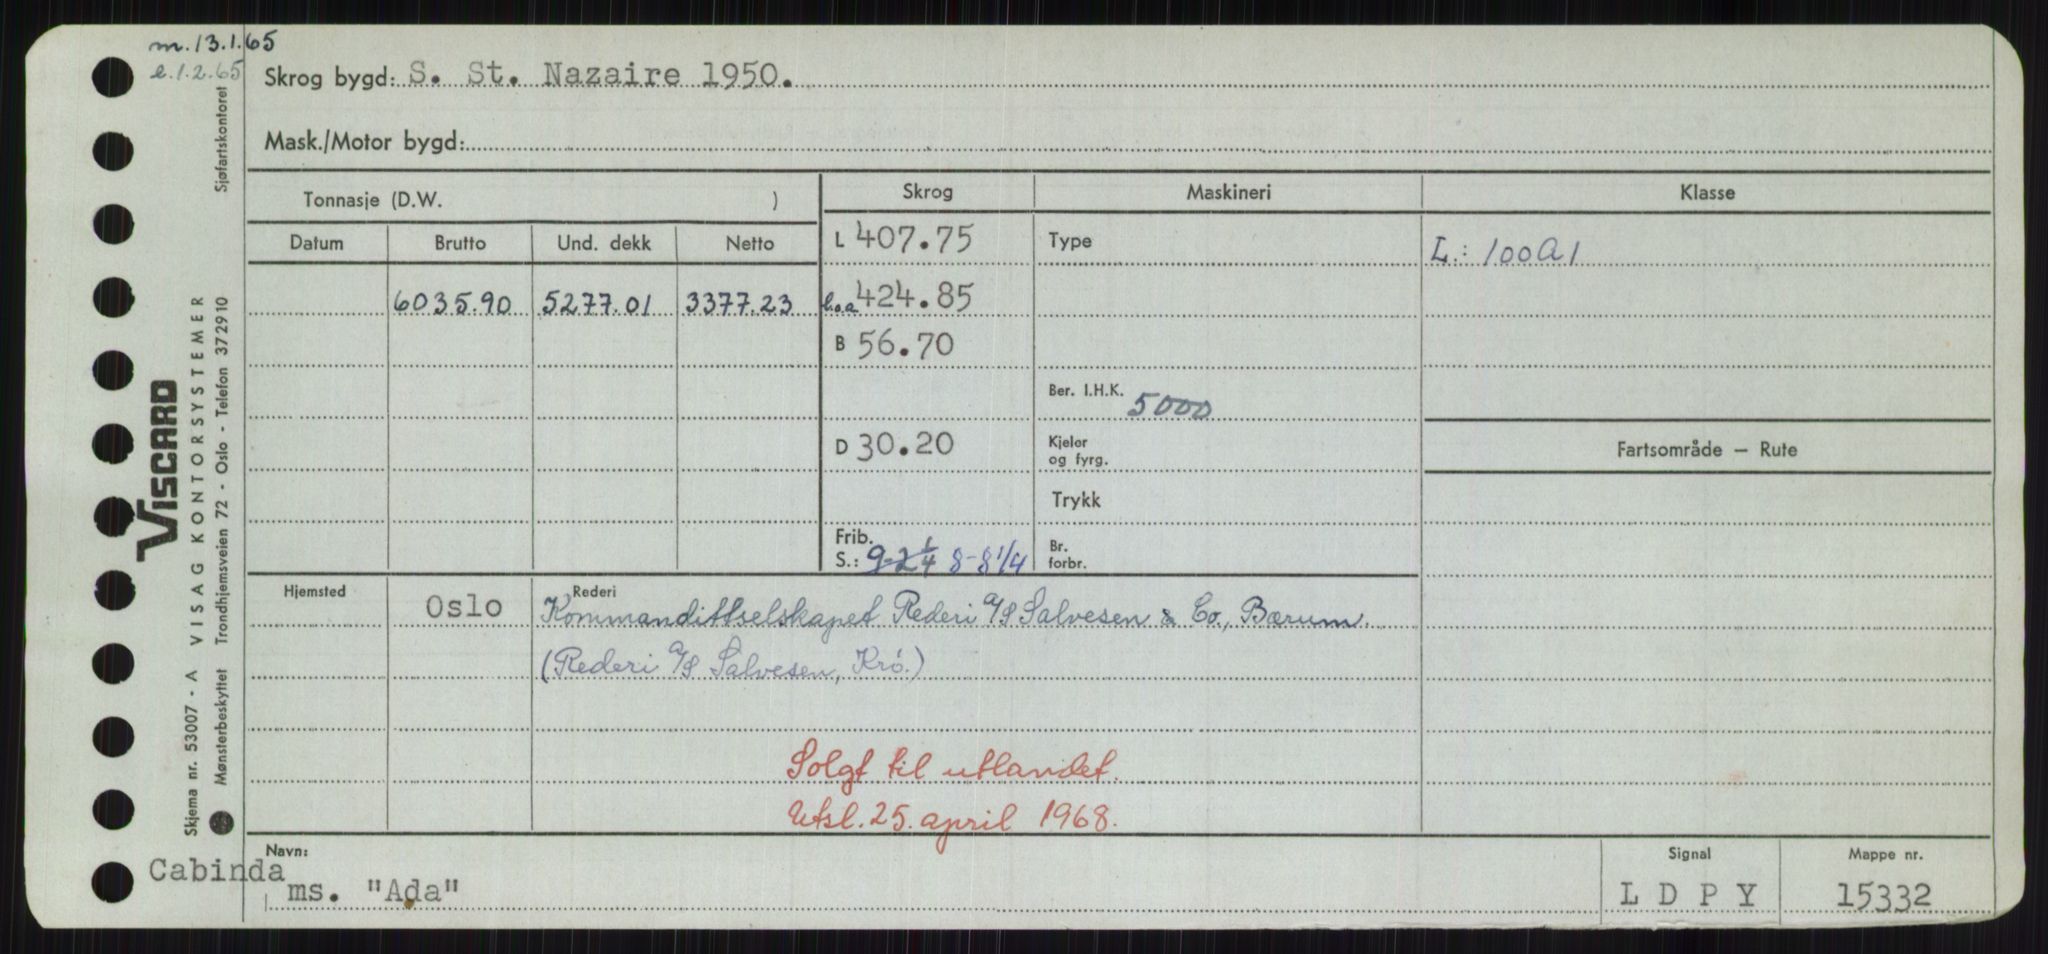 m. 13.1.65
e. 1.2.65
Skrog bygd: S. St. Nazaire 1950.
Mask./Motor bygd:
Tonnasje (D.W. )
Skrog
Maskineri
Klasse
Datum Brutto Und. dekk Netto
L 407.75
Type
L.: 100A1
6035.90 5277.01 3377.23
l.o.a 424.85
B 56.70
Ber. I.H.K. 5000
D 30.20
Kjeler
og fyrg.
Fartsområde — Rute
Trykk
Frib.
S.: 9-2 1/4 8-8 1/4
Br.
forbr.
Hjemsted
Oslo
Rederi
Kommandittselskapet Rederi A/S Salvesen & Co., Bærum.
(Rederi A/S Salvesen, Krö.)
Solgt til utlandet.
Utsl. 25. april 1968.
Navn:
Cabinda
ms. "Ada"
Signal
L D P Y
Mappe nr.
15332
VISCARD
VISAG KONTORSYSTEMER
Skjema nr. 53007 - A
Mønsterbeskyttet Trondhjemsveien 72 - Oslo - Telefon 372910
Sjøfartskontoret